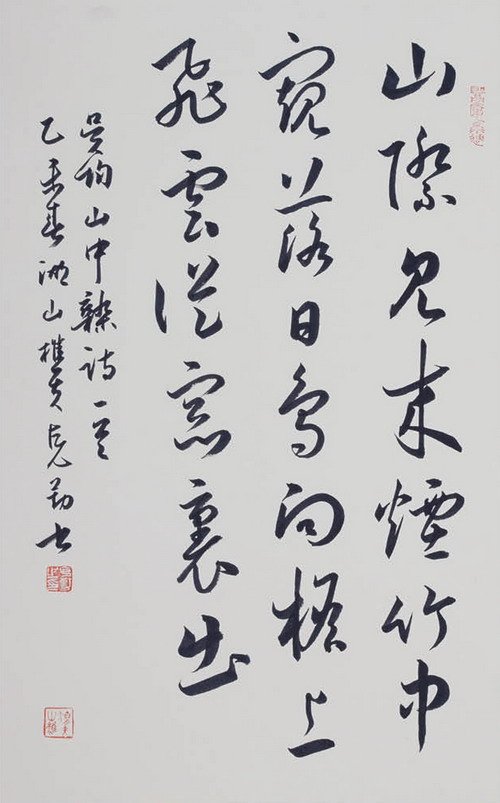 山際見来煙竹中
窺落日鳥向檐上
飛雲從窓裏出
吳均山中雜詩一首
乙未春湖山樵克勤书